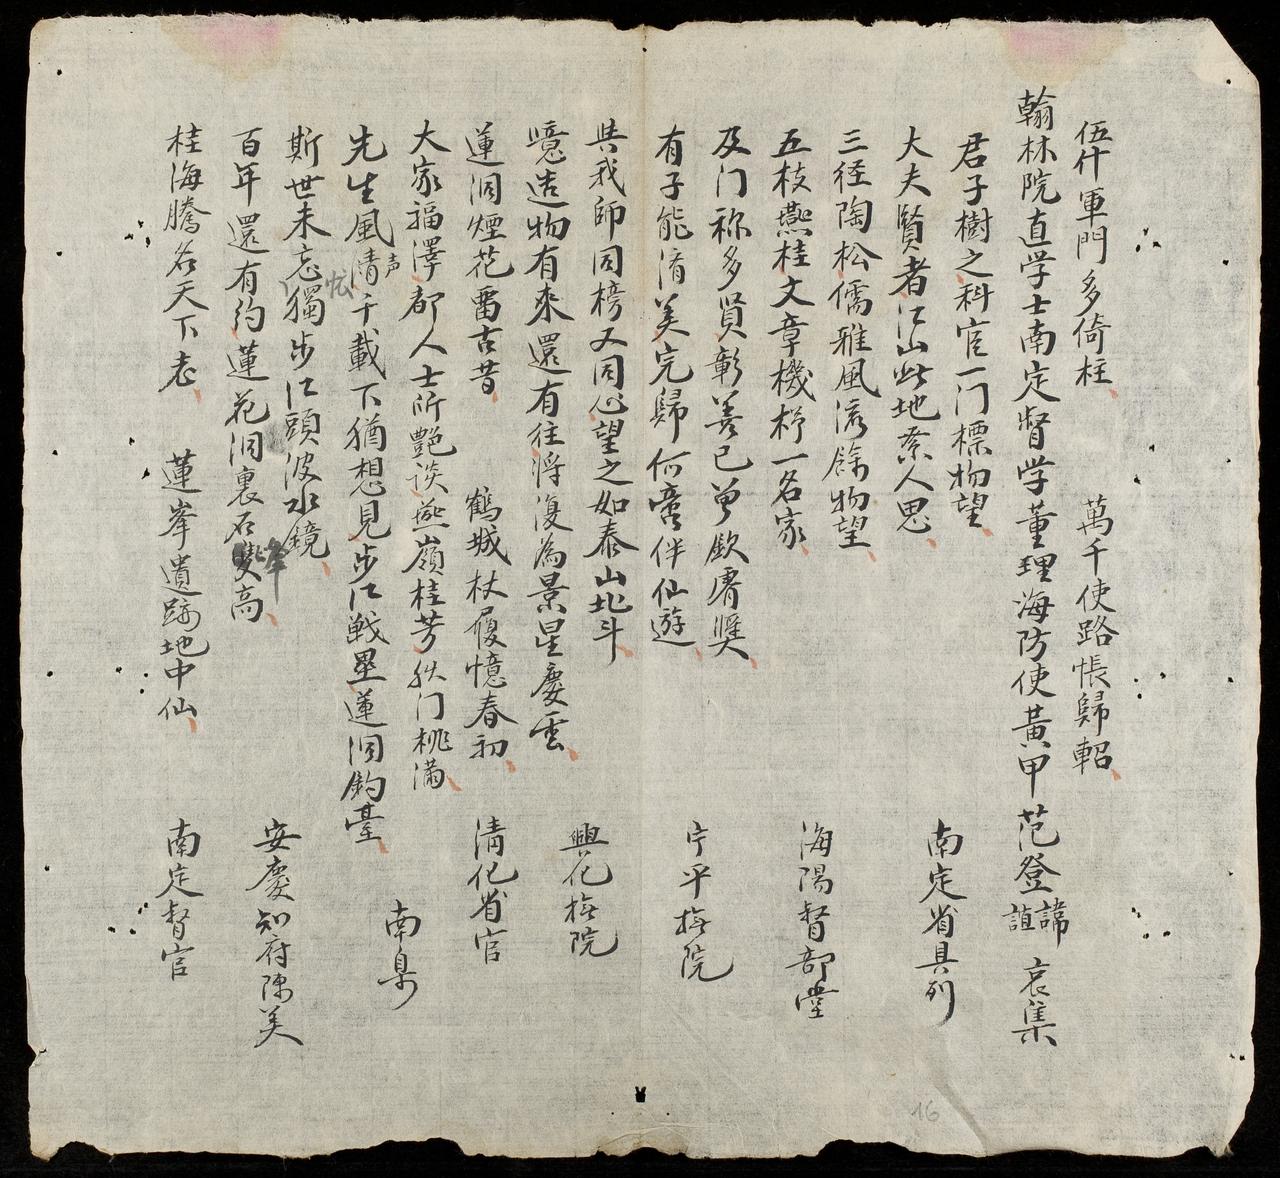 伍什軍門多倚柱、萬千使路悵歸軺、
翰林院直学士南定督学董理海防使黃甲范登諱誼哀集
君子樹之科宦一门標物望、
大夫賢者江山此地系人思、南定省具列
三径陶松儒雅風流餘物望、
五枝燕桂文章機杼一名家、海陽督部堂
及门称多賢彰善已曽欽厚奬、
有子能濟美完歸何啻伴仙遊、宁平撫院
共我師同榜又同心望之如泰山北斗、
噫造物有來還有往将復為景星慶雲、興化撫院
蓮洞煙花留古昔、鶴城杖履憶春初、清化省官
大家福澤都人士所艶谈燕嶺桂芳狄门桃滿、
先生風情声千載下猶想見步江戦壘蓮洞釣臺、南臬
斯世未忘忩獨步江頭波水鏡、
百年還有約蓮花洞裏石峰雙高、安慶知府陳美
桂海騰名天下老、蓮峯遺跡地中仙、南定督官
16